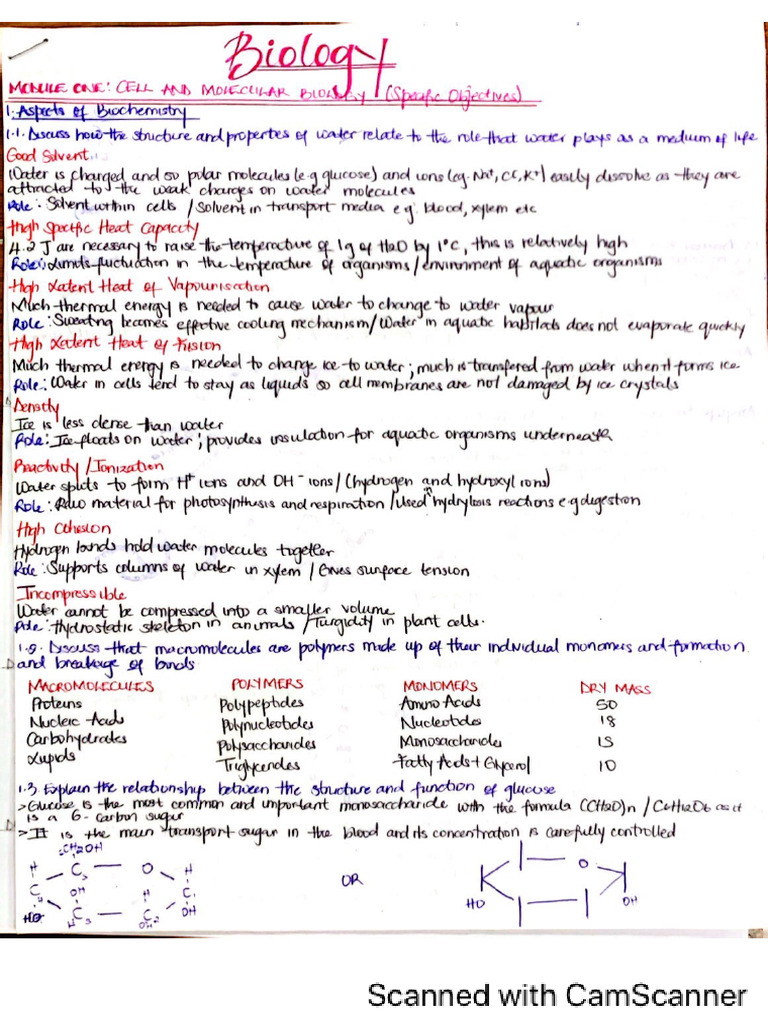 Biology
MODULE ONE: CELL AND MOLECULAR BIOLOGY (Specific Objectives)
1. Aspects of Biochemistry
1.1. Discuss how the structure and properties of water relate to the role that water plays as a medium of life
Good Solvent
Water is charged and so polar molecules (e.g glucose) and ions (eg. Na+, Cl, K+) easily dissolve as they are
attracted to the weak charges on water molecules
Role: Solvent within cells / Solvent in transport media e.g. blood, xylem etc
High Specific Heat Capacity
4.2 J are necessary to raise the temperature of 1g of H2O by 1°C, this is relatively high
Role: Limits fluctuation in the temperature of organisms / environment of aquatic organisms
High Latent Heat of Vapourisation
Much thermal energy is needed to cause water to change to water vapour
Role: Sweating becomes effective cooling mechanism / Water in aquatic habitats does not evaporate quickly
High Latent Heat of Fusion
Much thermal energy is needed to change ice to water; much is transfered from water when it forms ice.
Role: Water in cells tend to stay as liquids so cell membranes are not damaged by ice crystals
Density
Ice is less dense than water
Role: Ice floats on water; provides insulation for aquatic organisms underneath
Reactivity / Ionization
Water splits to form H+ ions and OH- ions / (hydrogen and hydroxyl ions)
Role: Raw material for photosynthesis and respiration / Used in hydrylosis reactions e.g digestion
High Cohesion
Hydrogen bonds hold water molecules together
Role: Supports columns of water in xylem / Gives surface tension
Incompressible
Water cannot be compressed into a smaller volume
Role: Hydrostatic skeleton in animals / Turgidity in plant cells.
1.2. Discuss that macromolecules are polymers made up of their individual monomers and formation
and breakage of bonds
MACROMOLECULES POLYMERS MONOMERS DRY MASS
Proteins Polypeptides Amino Acids 50
Nucleic Acids Polynucleotides Nucleotides 18
Carbohydrates Polysaccharides Monosaccharides 15
Lipids Triglycerides Fatty Acids + Glycerol 10
1.3 Explain the relationship between the structure and function of glucose
> Glucose is the most common and important monosaccharide with the formula (CH2O)n / C6H12O6 as it
is a 6-carbon sugar
> It is the main transport sugar in the blood and its concentration is carefully controlled
CH2OH
H C O H
C OH H C
HO C C OH
H OH
OR
O
HO OH
Scanned with CamScanner